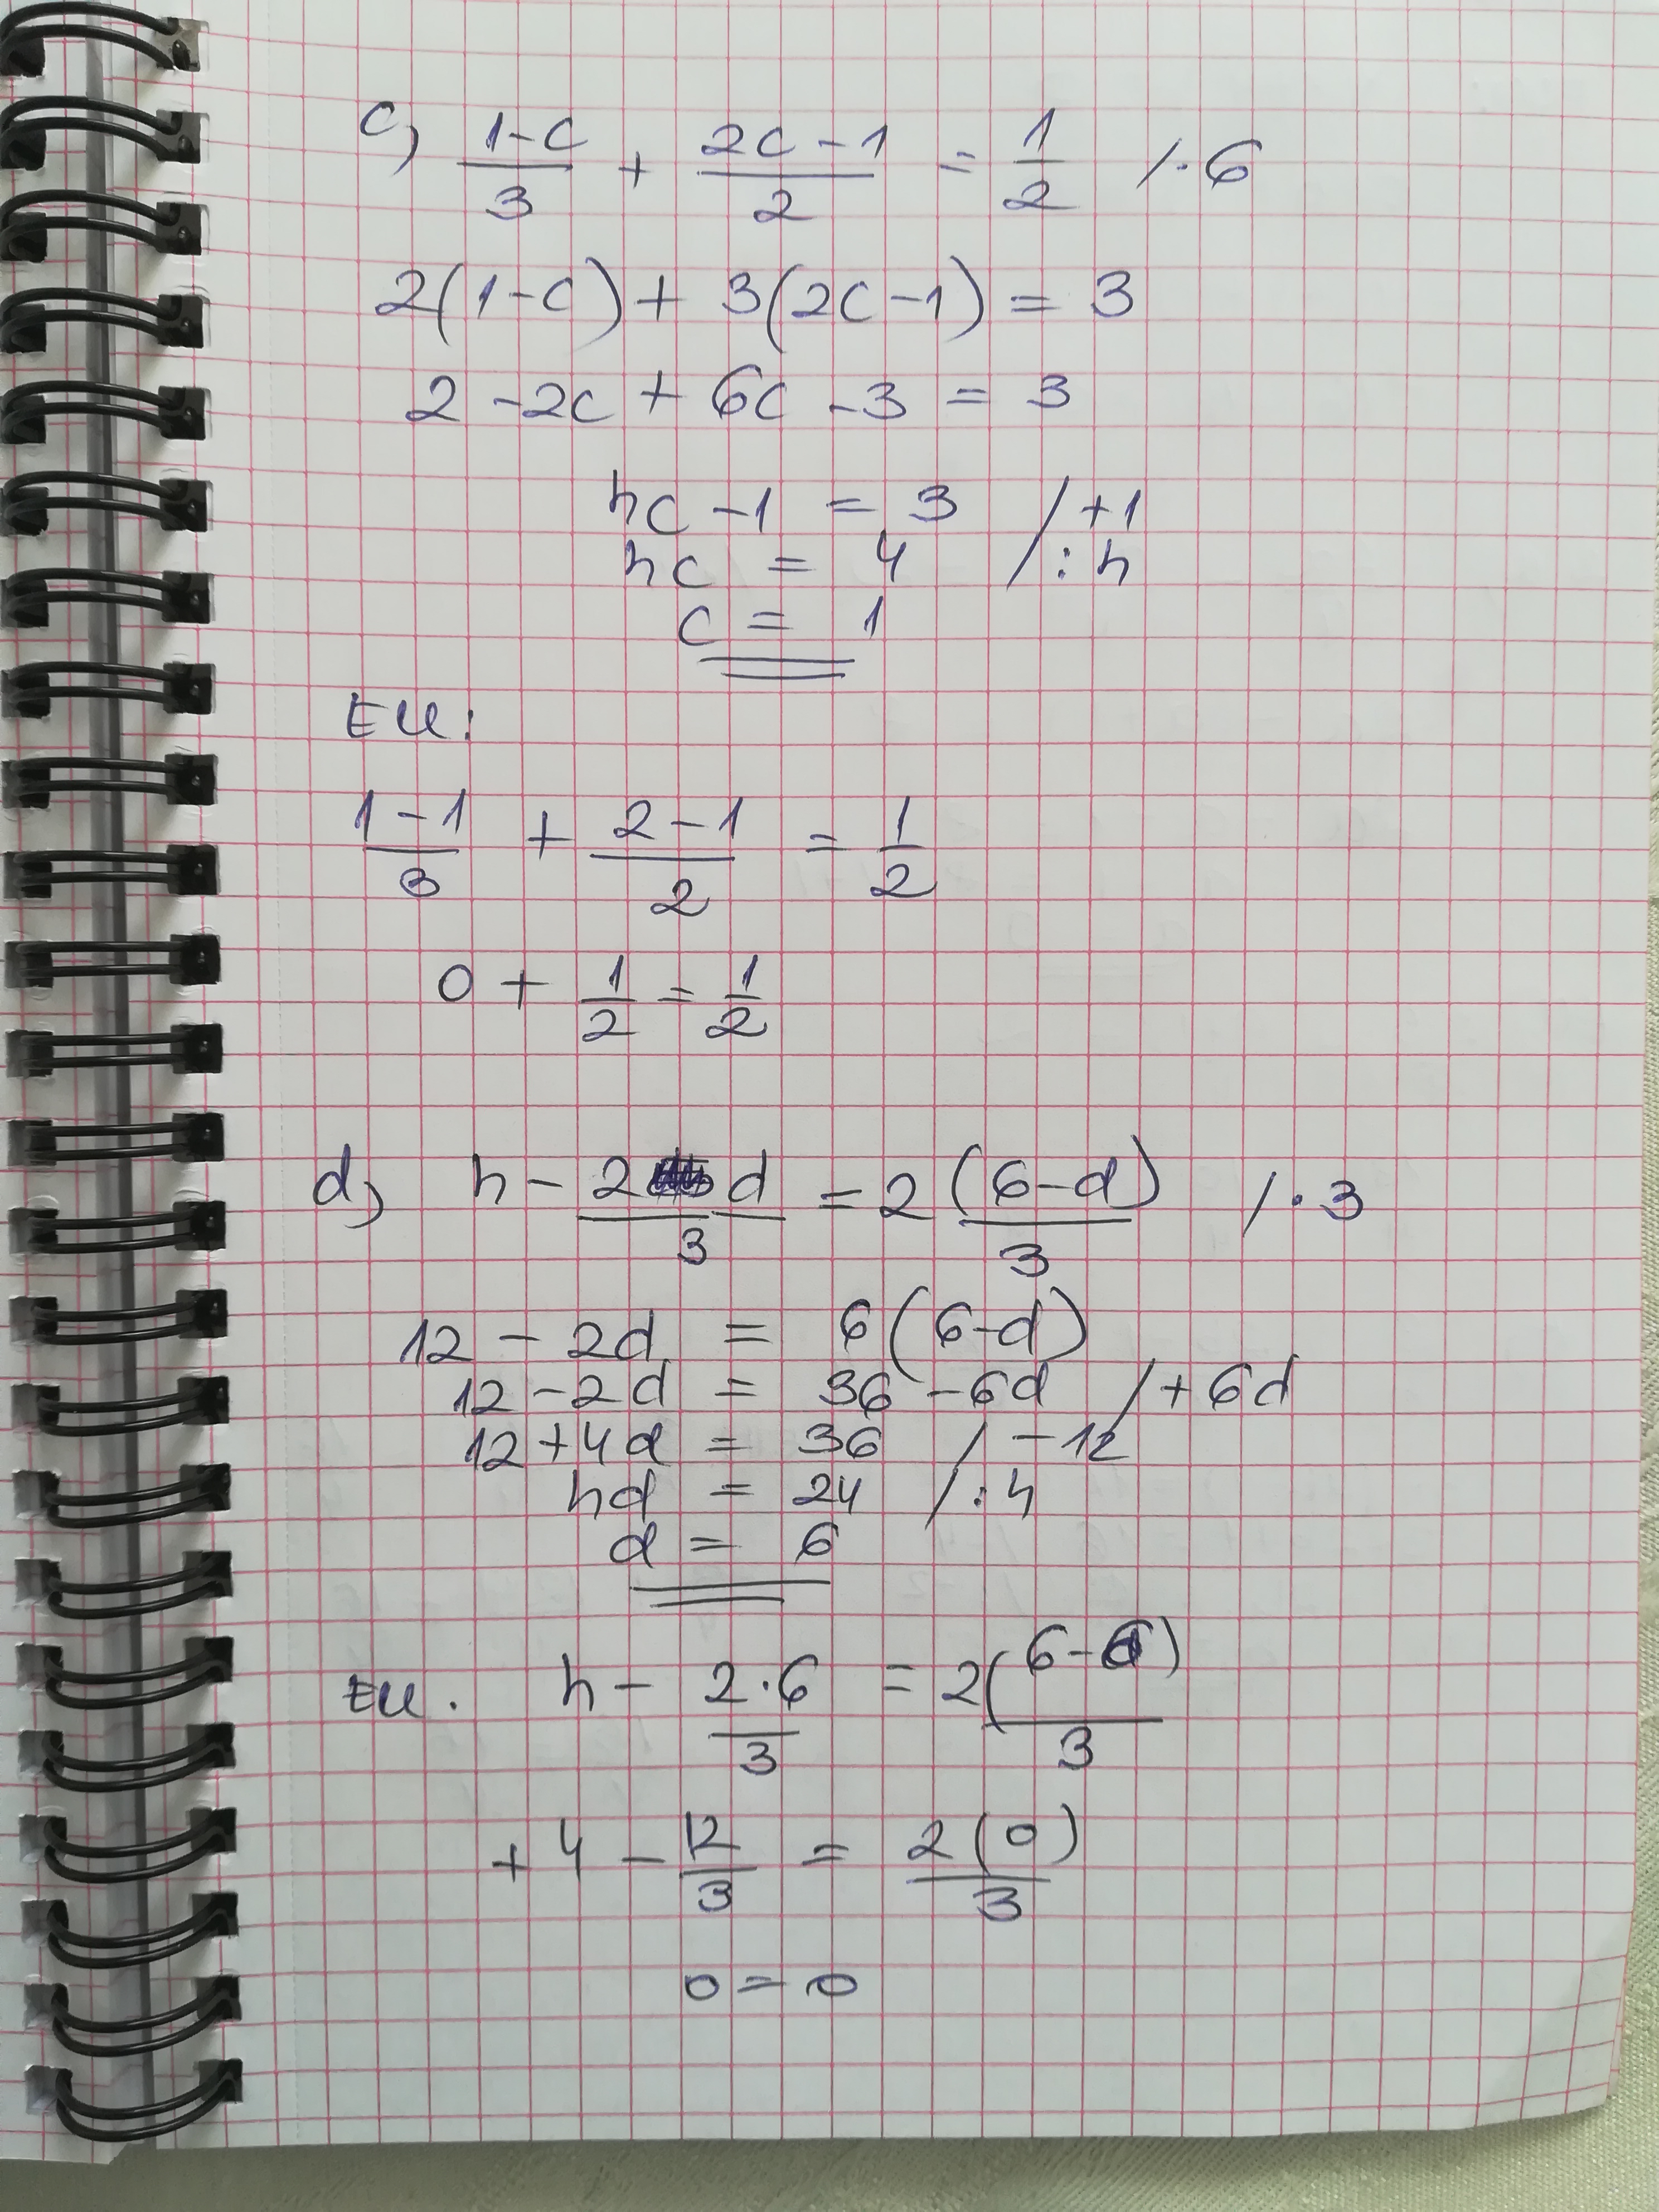 c) (1-c)/3 + (2c-1)/2 = 1/2 /·6
2(1-c) + 3(2c-1) = 3
2 -2c + 6c -3 = 3
4c -1 = 3 /+1
4c = 4 /:4
c = 1
Ell:
(1-1)/3 + (2-1)/2 = 1/2
0 + 1/2 = 1/2
d) 4 - 2d/3 = 2 (6-d)/3 /·3
12 - 2d = 6(6-d)
12 - 2d = 36 - 6d /+6d
12 + 4d = 36 /-12
4d = 24 /:4
d = 6
Ell. 4 - 2·6/3 = 2(6-6)/3
+4 - 12/3 = 2(0)/3
0 = 0